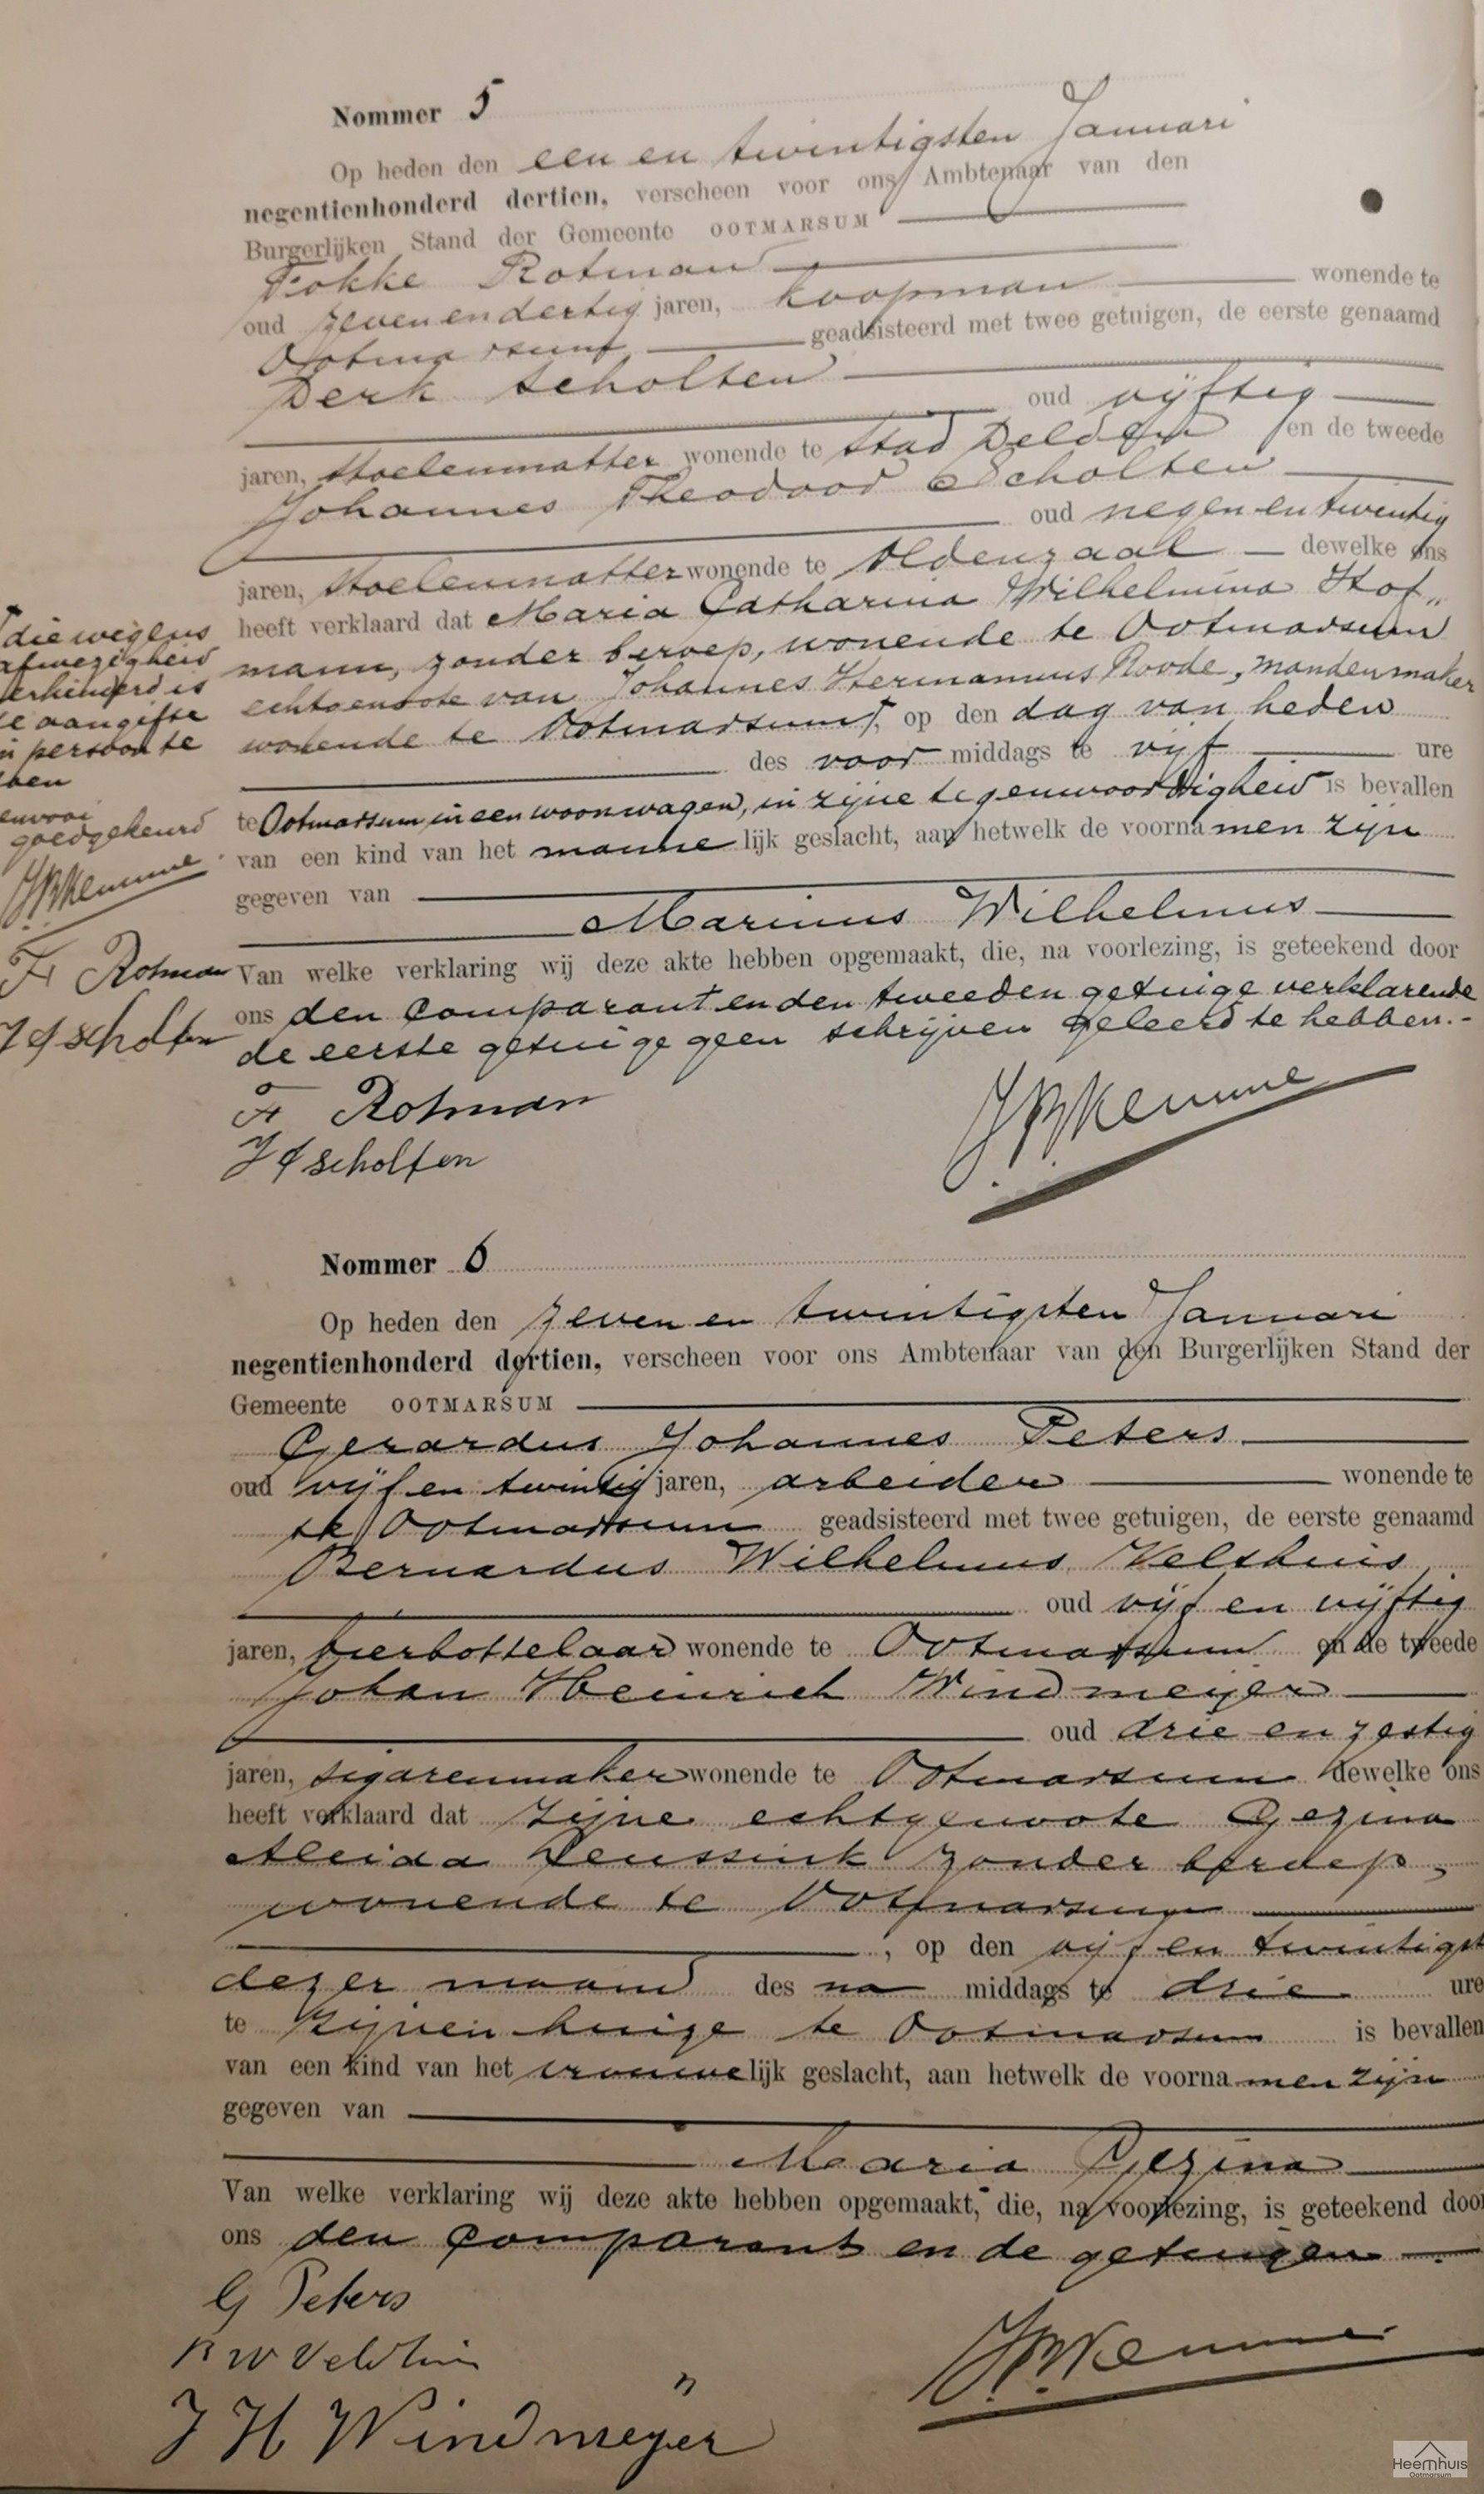 Nommer 5
Op heden den een en twintigsten Januari
negentienhonderd dertien, verscheen voor ons Ambtenaar van den
Burgerlijken Stand der Gemeente OOTMARSUM
Fokke Rotman
oud zeven en dertig jaren, koopman wonende te
Ootmarsum, geadsisteerd met twee getuigen, de eerste genaamd
Derk Scholten
oud vijftig
jaren, stoelenmatter wonende te Stad Delden en de tweede
Johannes Theodoor Scholten
oud negen en twintig
jaren, stoelenmatter wonende te Oldenzaal dewelke ons
heeft verklaard dat Maria Catharina Wilhelmina Hof„
mann, zonder beroep, wonende te Ootmarsum
echtgenoote van Johannes Hermannus Roode, mandenmaker
wonende te Ootmarsum, op den dag van heden
des voor middags te vijf ure
te Ootmarsum in een woonwagen, in zijne tegenwoordigheid is bevallen
van een kind van het manne lijk geslacht, aan hetwelk de voorna men zijn
gegeven van
Marinus Wilhelmus
Van welke verklaring wij deze akte hebben opgemaakt, die, na voorlezing, is geteekend door
ons den comparant en den tweeden getuige verklarende
de eerste getuige geen schrijven geleerd te hebben.-
F Rotman
Scholten
JBKemme
die wegens
afwezigheid
verhinderd is
de aangifte
in persoon te
doen
goedgekeurd
JBKemme
F Rotman
Scholten
Nommer 6
Op heden den zeven en twintigsten Januari
negentienhonderd dertien, verscheen voor ons Ambtenaar van den Burgerlijken Stand der
Gemeente OOTMARSUM
Gerardus Johannes Peters
oud vijf en twintig jaren, arbeider wonende te
te Ootmarsum geadsisteerd met twee getuigen, de eerste genaamd
Bernardus Wilhelmus Velthuis,
oud vijf en vijftig
jaren, bierbottelaar wonende te Ootmarsum en de tweede
Johan Heinrich Windmeijer
oud drie en zestig
jaren, sigarenmaker wonende te Ootmarsum dewelke ons
heeft verklaard dat zijne echtgenoote Gezina
Aleida Leussink zonder beroep,
wonende te Ootmarsum
, op den vijf en twintigst
dezer maand des na middags te drie ure
te zijnen huize te Ootmarsum is bevallen
van een kind van het vrouwe lijk geslacht, aan hetwelk de voorna men zijn
gegeven van
Maria Gezina
Van welke verklaring wij deze akte hebben opgemaakt, die, na voorlezing, is geteekend door
ons den comparant en de getuigen
G Peters
B W Velthuis
J H Windmeyer
JBKemme
Heemhuis
Ootmarsum